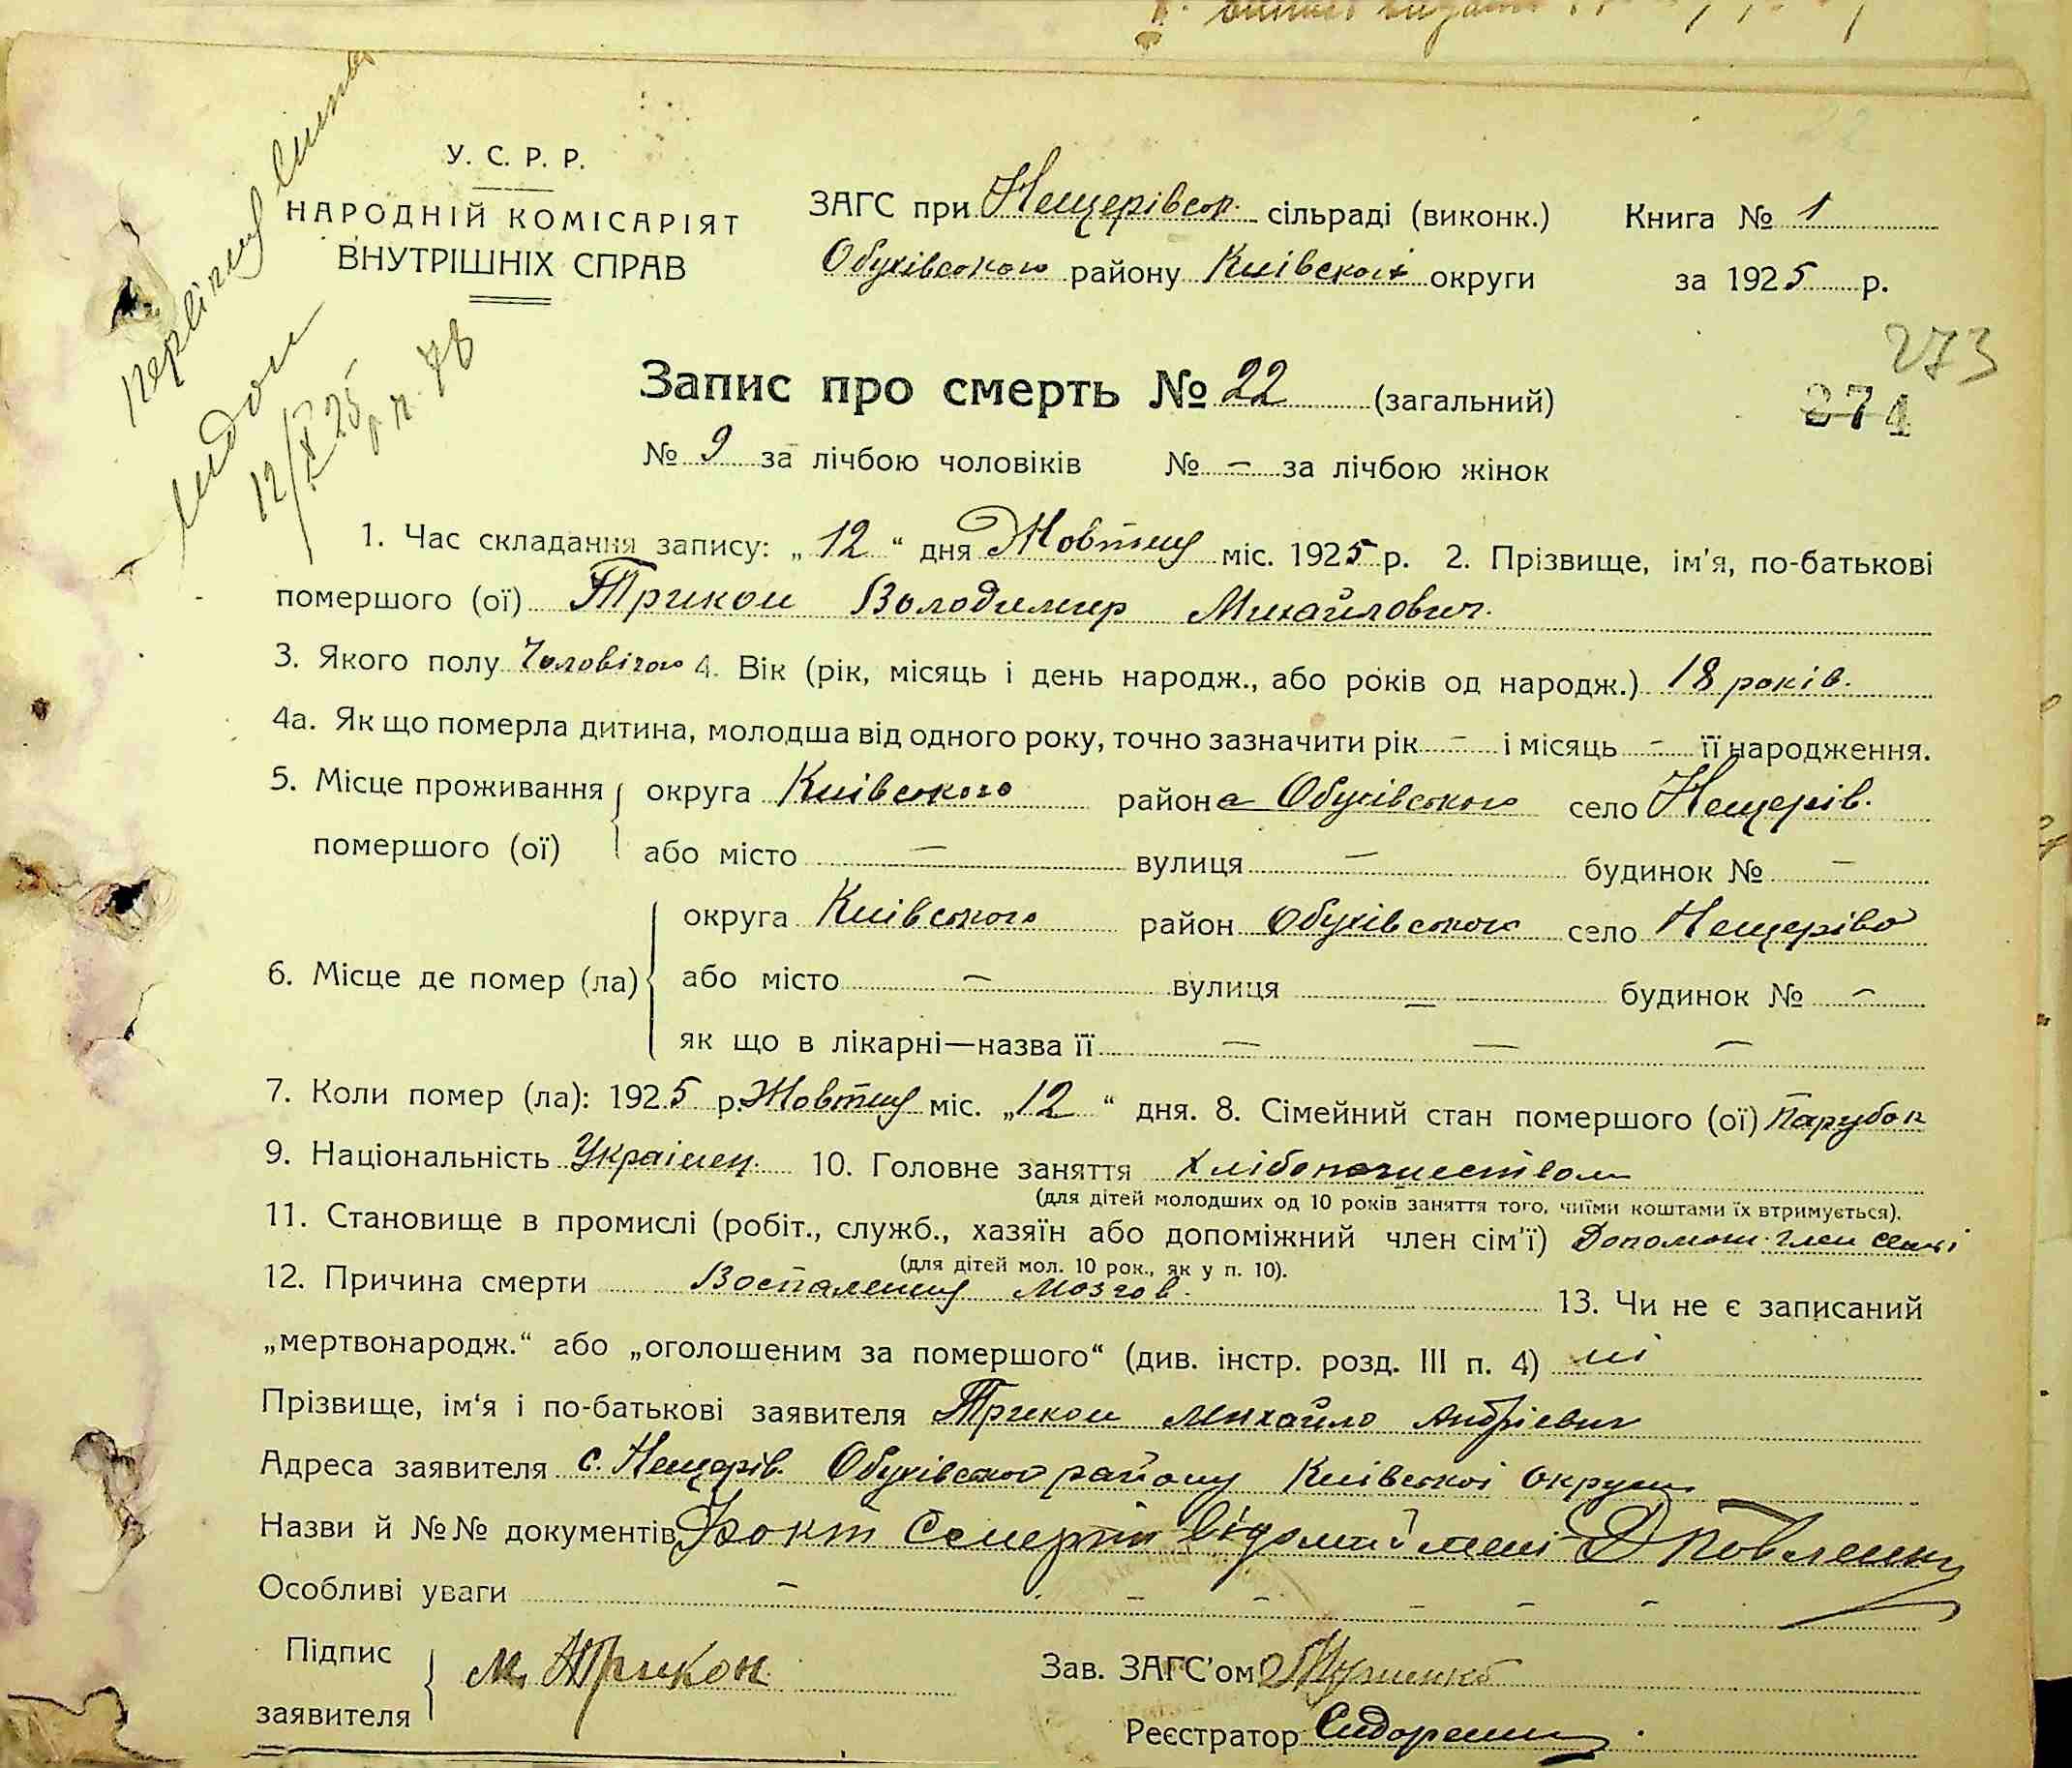 У. С. Р. Р.
НАРОДНІЙ КОМІСАРІЯТ
ВНУТРІШНІХ СПРАВ
ЗАГС при Нещерівськ. сільраді (виконк.)
Обухівського району Київскої округи
Книга № 1
за 1925 р.
12/X 25 р. п. 7в
273
274
Запис про смерть № 22 (загальний)
№ 9 за лічбою чоловіків № – за лічбою жінок
1. Час складання запису: „12“ дня Жовтня міс. 1925 р. 2. Прізвище, ім'я, по-батькові
помершого (ої) Трикош Володимир Михайлович.
3. Якого полу Чоловічого 4. Вік (рік, місяць і день народж., або років од народж.) 18 років.
4а. Як що померла дитина, молодша від одного року, точно зазначити рік – і місяць – її народження.
5. Місце проживання помершого (ої) округа Київського района Обухівського село Нещерів.
або місто – вулиця – будинок № –
6. Місце де помер (ла) округа Київського район Обухівського село Нещерів
або місто – вулиця – будинок № –
як що в лікарні—назва її – – –
7. Коли помер (ла): 1925 р. Жовтня міс. „12“ дня. 8. Сімейний стан помершого (ої) Парубок
9. Національність Українец. 10. Головне заняття
(для дітей молодших од 10 років заняття того, чиїми коштами їх втримується).
11. Становище в промислі (робіт., служб., хазяїн або допоміжний член сім'ї) Допомож. член семьі
(для дітей мол. 10 рок., як у п. 10).
12. Причина смерти Воспаления Мозгов. 13. Чи не є записаний
„мертвонародж.“ або „оголошеним за помершого“ (див. інстр. розд. III п. 4) ні
Прізвище, ім'я і по-батькові заявителя Трикош Михайло Андрієвич
Адреса заявителя с. Нещерів. Обухівського району Київської Округи
Назви й №№ документів Факт Смерти відомий мені Д Павленко
Особливі уваги – – – – – –
Підпис заявителя М. Трикош
Зав. ЗАГС'ом
Реєстратор Сидоренко